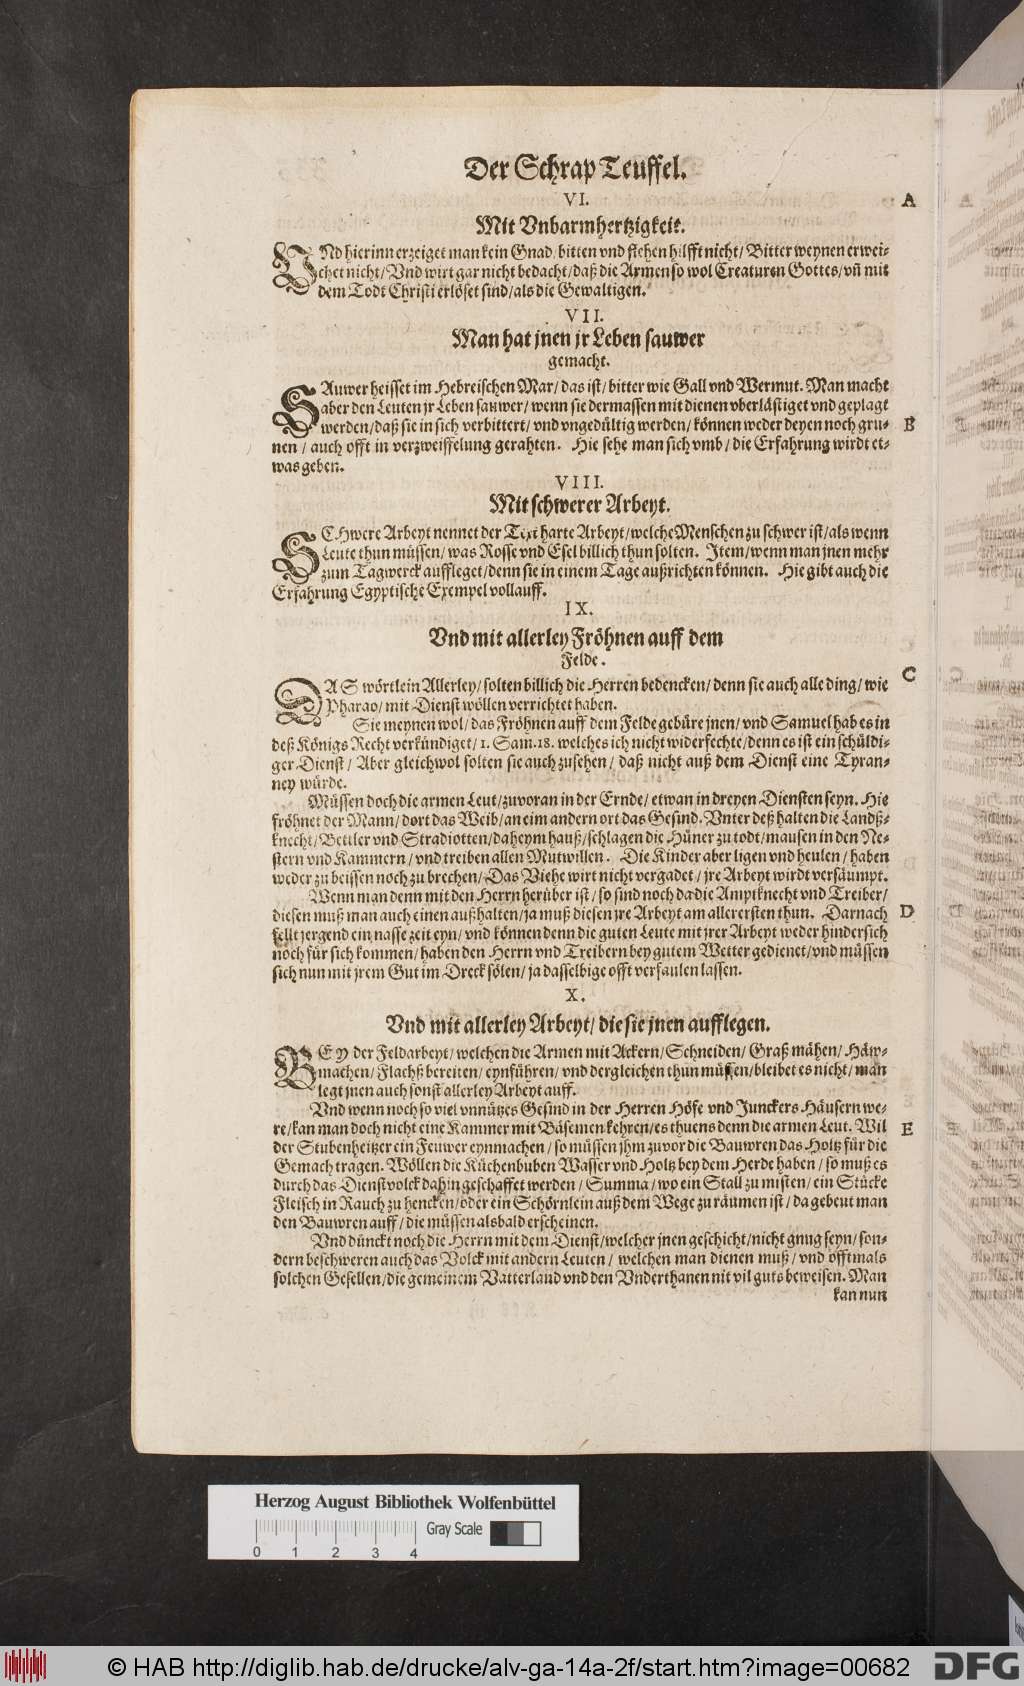 Der Schrap Teuffel.
VI.
A
Mit Vnbarmhertzigkeit.
VNd hierinn erzeiget man kein Gnad/ bitten vnd flehen hilfft nicht/ Bitter weynen erwei-
chet nicht/ Vnd wirt gar nicht bedacht/ daß die Armen so wol Creaturen Gottes/ vn̄ mit
dem Todt Christi erlöset sind/ als die Gewaltigen.
VII.
Man hat jnen jr Leben sauwer
gemacht.
SAuwer heisset im Hebreischen Mar/ das ist/ bitter wie Gall vnd Wermut. Man macht
aber den Leuten jr Leben sauwer/ wenn sie dermassen mit dienen vberlästiget vnd geplagt
werden/ daß sie in sich verbittert/ vnd vngedültig werden/ können weder deyen noch gru-
B
nen/ auch offt in verzweiffelung gerahten. Hie sehe man sich vmb/ die Erfahrung wirdt et-
was geben.
VIII.
Mit schwerer Arbeyt.
SCHwere Arbeyt nennet der Text harte Arbeyt/ welche Menschen zu schwer ist/ als wenn
Leute thun müssen/ was Rosse vnd Esel billich thun solten. Item/ wenn man jnen mehr
zum Tagwerck auffleget/ denn sie in einem Tage außrichten können. Hie gibt auch die
Erfahrung Egyptische Exempel vollauff.
IX.
Vnd mit allerley Fröhnen auff dem
Felde.
C
DAS wörtlein Allerley/ solten billich die Herren bedencken/ denn sie auch alle ding/ wie
Pharao/ mit Dienst wöllen verrichtet haben.
Sie meynen wol/ das Fröhnen auff dem Felde gebüre jnen/ vnd Samuel hab es in
deß Königs Recht verkündiget/ 1. Sam. 18. welches ich nicht widerfechte/ denn es ist ein schüldi-
ger Dienst/ Aber gleichwol solten sie auch zusehen/ daß nicht auß dem Dienst eine Tyran-
ney würde.
Müssen doch die armen Leut/ zuvoran in der Ernde/ etwan in dreyen Diensten seyn. Hie
fröhnet der Mann/ dort das Weib/ an eim andern ort das Gesind. Vnter deß halten die Landß-
knecht/ Bettler vnd Stradiotten/ daheym hauß/ schlagen die Hüner zu todt/ mausen in den Ne-
stern vnd Kammern/ vnd treiben allen Mutwillen. Die Kinder aber ligen vnd heulen/ haben
weder zu beissen noch zu brechen/ Das Viehe wirt nicht vergadet/ jre Arbeyt wirdt versäumpt.
Wenn man denn mit den Herrn herüber ist/ so sind noch da die Amptknecht vnd Treiber/
diesen muß man auch einen außhalten/ ja muß diesen jre Arbeyt am allerersten thun. Darnach
D
fellt jergend ein nasse zeit eyn/ vnd können denn die guten Leute mit jrer Arbeyt weder hindersich
noch für sich kommen/ haben den Herrn vnd Treibern bey gutem Wetter gedienet/ vnd müssen
sich nun mit jrem Gut im Dreck sölen/ ja dasselbige offt verfaulen lassen.
X.
Vnd mit allerley Arbeyt/ die sie jnen aufflegen.
BEY der Feldarbeyt/ welchen die Armen mit Ackern/ Schneiden/ Graß mähen/ Häw-
machen/ Flachß bereiten/ eynführen/ vnd dergleichen thun müssen/ bleibet es nicht/ man
legt jnen auch sonst allerley Arbeyt auff.
Vnd wenn noch so viel vnnützes Gesind in der Herren Höfe vnd Junckers Häusern we-
re/ kan man doch nicht eine Kammer mit Bäsemen kehren/ es thuens denn die armen Leut. Wil
E
der Stubenheitzer ein Feuwer eynmachen/ so müssen jhm zuvor die Bauwren das Holtz für die
Gemach tragen. Wöllen die Küchenbuben Wasser vnd Holtz bey dem Herde haben/ so muß es
durch das Dienstvolck dahin geschaffet werden/ Summa/ wo ein Stall zu misten/ ein Stücke
Fleisch in Rauch zu hencken/ oder ein Schörnlein auß dem Wege zu räumen ist/ da gebeut man
den Bauwren auff/ die müssen alsbald erscheinen.
Vnd dünckt noch die Herrn mit dem Dienst/ welcher jnen geschicht/ nicht gnug seyn/ son-
dern beschweren auch das Volck mit andern Leuten/ welchen man dienen muß/ vnd offtmals
solchen Gesellen/ die gemeinem Vatterland vnd den Vnderthanen nit vil guts beweisen. Man
kan nun
Herzog August Bibliothek Wolfenbüttel
Gray Scale
0 1 2 3 4
© HAB http://diglib.hab.de/drucke/alv-ga-14a-2f/start.htm?image=00682
DFG